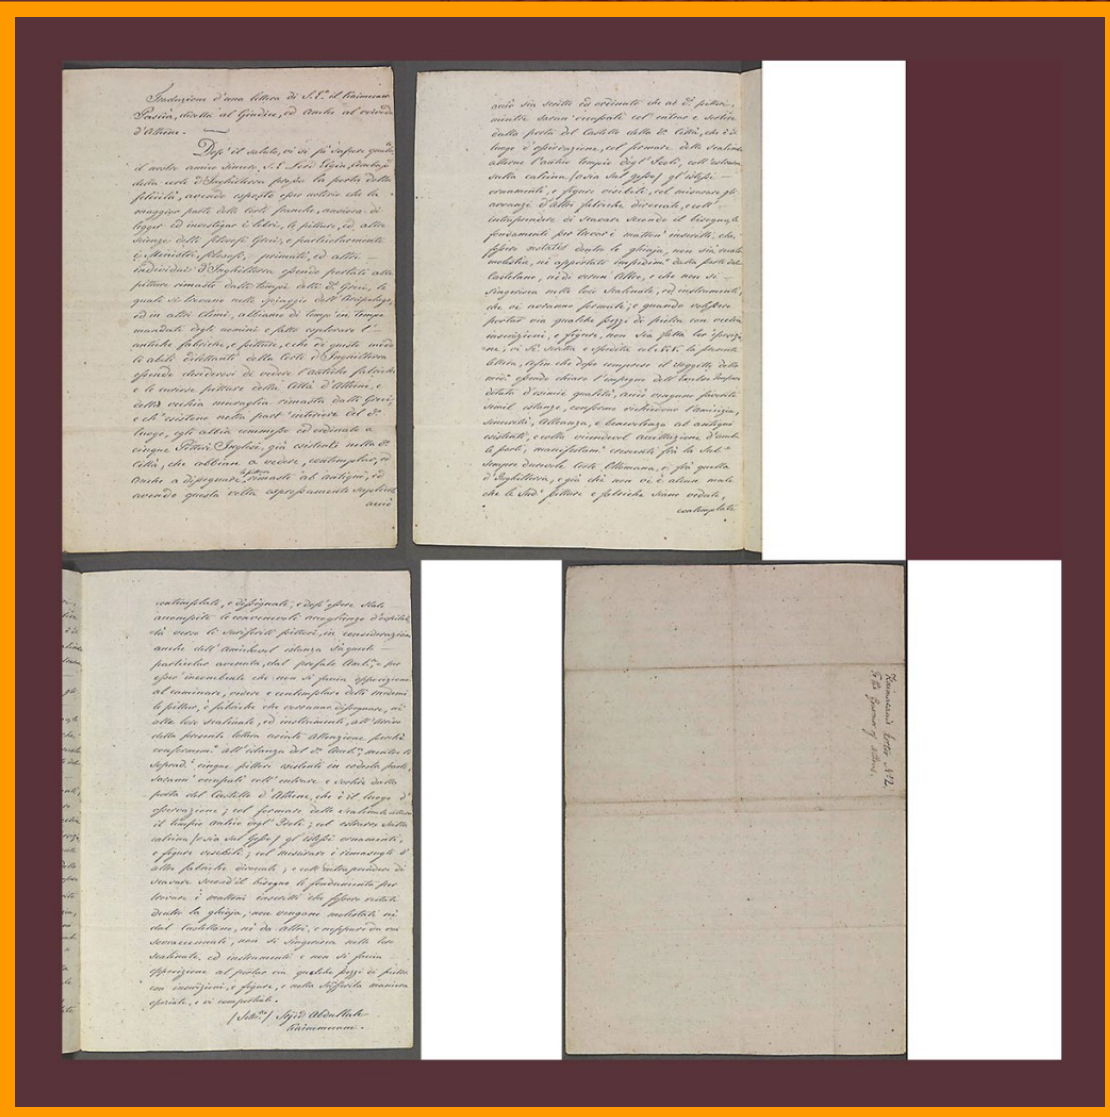 Traduzione d'una lettera di S. E. il Kaimmecam
Pascià, diretta al Giudice, ed anche al Vaivoda
d'Athene.
Dopo il saluto, vi si fà sapere qualm.
il nostro amico sincero, S. E. Lord Elgin, Ambasc.
della corte d'Inghilterra presso la porta della
felicità, avendo esposto esser notorio che la
maggior parte delle Corti franche, ansiosa di
legger ed investigar i libri, le pitture, ed altre
scienze delli filosofi Greci, e particolarmente
i Ministri, filosofi, primati, ed altri
individui d'Inghilterra essendo portati alle
pitture rimaste dalli tempi delli d. Greci, le
quali si trovano nelle spiaggie dell'Arcipelago,
ed in altri climi, abbiano di tempo in tempo
mandati degli uomini e fatto esplorare l'
antiche fabriche, e pitture, e che di questo modo
li abili dilettanti della Corte d'Inghilterra
essendo desiderosi di vedere l'antiche fabriche
e le curiose pitture della Città d'Athene, e
della vecchia muraglia rimasta dalli Greci,
e ch'esistono nella part' interiore del d.
luogo, egli abbia commesso ed ordinato a
cinque Pittori Inglesi, già esistenti nella d.
Città, che abbiano a vedere, contemplar, ed
anche a disegnare le pitture rimaste ab antiquo, ed
avendo questa volta espressamente supplicato
acciò
acciò sia scritto ed ordinato che ai d. pittori,
mentre saran' occupati col' entrar e sortire
dalla porta del Castello della d. Città, che è il
luogo d'osservazione, col formare delle scalinate
attorno l'antico tempio degl' Idoli, coll' estrarre
sulla calcina (osia sul gesso) gl'istessi
ornamenti, e figure visibili, col misurare gli
avanzi d'altre fabriche diroccate, e coll'
intraprendere di scavare secondo il bisogno le
fondamenta per trovar i mattoni inscritti, che
fossero restati dentro la ghiaja, non sia recata
molestia, nè apportato impedim. dalla parte del
Castellano, nè di verun' altro, e che non si
s'ingerisca nelle loro scalinate, ed instrumenti,
che vi avranno formati; e quando volessero
portar via qualche pezzi di pietra con vecchie
inscrizioni, e figure, non sia fatta lor' opposizio
ne, vi si è scritta e spedita col la presente
lettera, affin che dopo compreso il soggetto della
med. essendo chiaro l'impegno dell' Eccelso Impero
dotato d'esimie qualità, acciò vengano favorite
simil istanze, conforme richiedono l'amicizia,
sincerità, Alleanza, e benevolenza ab antiquo
esistenti, e colla vicendevol accettazione d'ambe
le parti, manifestam. crescenti frà la Sub.
sempre durevole Corte Ottomana, e frà quella
d'Inghilterra, e già chè non vi è alcun male
che le sud. pitture e fabriche siano vedute,
contemplate
contemplate, e dissegnate; e dopo essere state
accompite le convenevoli accoglienze d'ospitali
tà verso li suriferiti pittori, in considerazione
anche dell' amichevol istanza su questo
particolar avvenuta, dal prefato Amb., e per
esser incombente che non si faccia opposizione
al caminare, vedere e contemplare delli medemi
le pitture, e fabriche che vorranno dissegnare, nè
alle loro scalinate, ed instrumenti, all' arrivo
della presente lettera usiate attenzione perchè
conformem. all' istanza del d. Amb., mentre li
soprad. cinque pittori esistenti in codesta parte,
saranno occupati coll' entrare e sortire dalla
porta del Castello d'Athene, che è il luogo d'
osservazione; col formare delle scalinate attorno
il tempio antico degl' Idoli; col estrarre sulla
calcina (osia sul gesso) gl' istessi ornamenti,
e figure visibili; col misurare i rimasugli d'
altre fabriche diroccate; e coll' intraprendere di
scavare second' il bisogno le fondamenta per
trovare i mattoni inscritti che fossero restati
dentro la ghiaja; non vengano molestati nè
dal Castellano, nè da altri, e neppure da voi
sovraccennati, non si s'ingerisca nelle loro
scalinate, ed instrumenti e non si faccia
opposizione al portar via qualche pezzi di pietra
con inscrizioni, e figure, e nella suriferita maniera
operiate, e vi comportiate.
(Sottos.) Sejid Abdullah
Kaimmecam.
Kaimacam's Letter No. 2.
To the Governor of Athens.